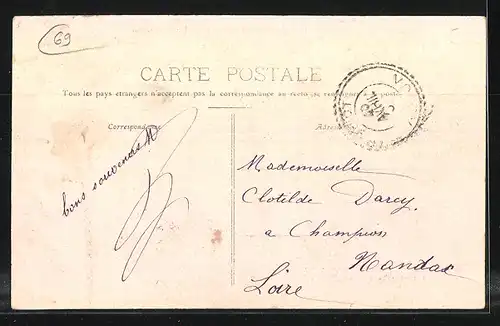 69
CARTE POSTALE
Tous les pays étrangers n'acceptent pas la correspondance au recto
Correspondance
Adresse
bons souvenirs
Mademoiselle
Clotilde Darcy
a Champion
Nandax
Loire